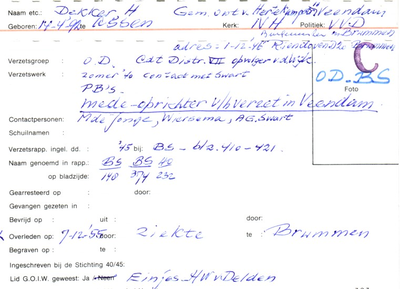 Naam etc.: Dekker H Gem. ontv. Veendam
Geboren: te Assen Kerk: NH Politiek: VVD
Brummen
adres: 1-12-45
Verzetsgroep : O.D. Cdt Distr. VII opvolger v.
Verzetswerk : zomer 40 contact met Swart
PB's. OD-BS
mede-oprichter v/h verzet in Veendam. Foto
Contactpersonen: M de Jonge, Wiersema, A.G. Swart
Schuilnaam :
Verzetsrapp. ingel. dd. : '45 bij: BS - blz. 410-421.
Naam genoemd in rapp.: BS BS
op bladzijde: 148 374 232
Gearresteerd op : door:
Gevangen gezeten in :
Bevrijd op : uit : door:
Overleden op: 7-12-'55 door: ziekte te : Brummen
Begraven op : te :
Ingeschreven bij de Stichting 40/45:
Lid G.O.I.W. geweest: Ja / Neen Eintjes - HW v Delden